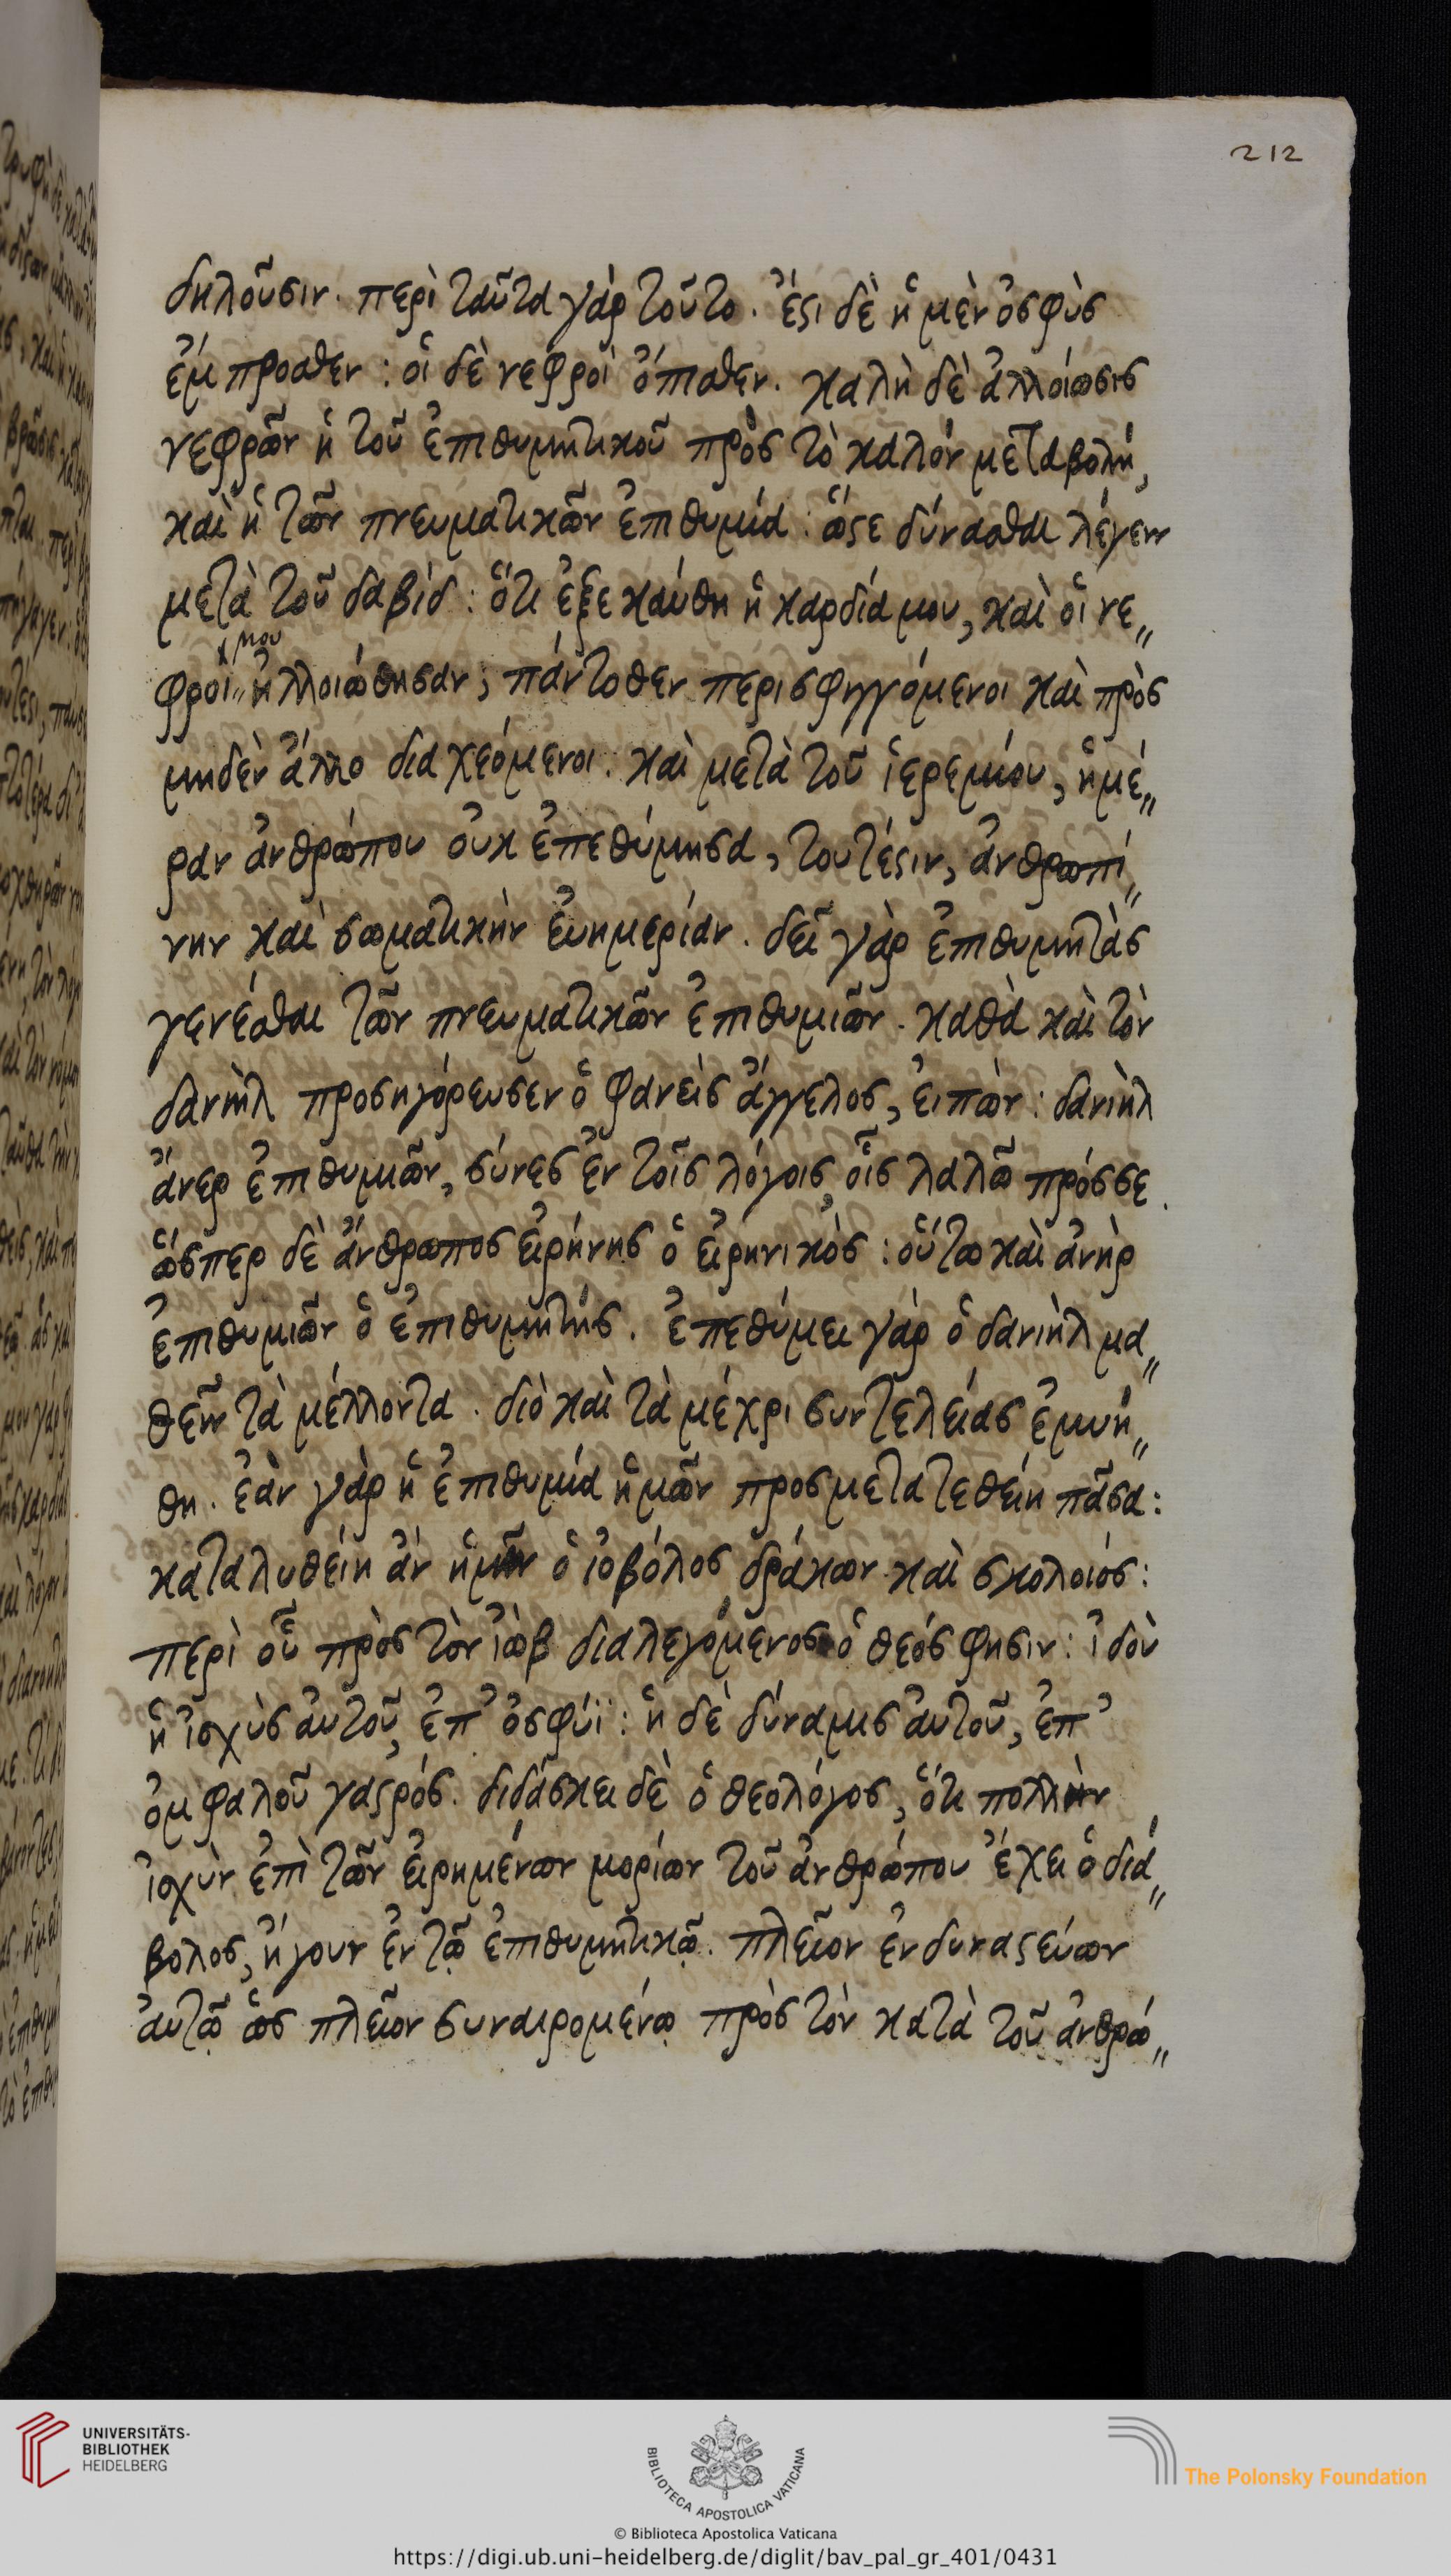 212
δηλοῦσιν. περὶ ταῦτα γὰρ τοῦτο. ἔστι δὲ ἡ μὲν ὀσφὺς
ἔμπροσθεν: οἱ δὲ νεφροὶ ὄπισθεν. καλὴ δὲ ἀλλοίωσις
νεφρῶν ἡ τοῦ ἐπιθυμητικοῦ πρὸς τὸ καλὸν μεταβολή,
καὶ ἡ τῶν πνευματικῶν ἐπιθυμία: ὥστε δύνασθαι λέγειν
μετὰ τοῦ δαβίδ: ὅτι ἐξεκαύθη ἡ καρδία μου, καὶ οἱ νε„
φροὶ μου ἠλλοιώθησαν; πάντοθεν περισφηγγόμενοι καὶ πρὸς
μηδὲν ἄλλο διαχεόμενοι. καὶ μετὰ τοῦ ἱερεμίου, ἡμέ„
ραν ἀνθρώπου οὐκ ἐπεθύμησα, τουτέστιν, ἀνθρωπί„
νην καὶ σωματικὴν εὐημερίαν. δεῖ γὰρ ἐπιθυμητὰς
γενέσθαι τῶν πνευματικῶν ἐπιθυμιῶν. καθὰ καὶ τὸν
δανιὴλ προσηγόρευσεν ὁ φανεὶς ἄγγελος, εἰπὼν: δανιὴλ
ἄνερ ἐπιθυμιῶν, σύνες ἐν τοῖς λόγοις, οἷς λαλῶ πρόσσε.
ὥσπερ δὲ ἄνθρωπος εἰρήνης ὁ εἰρηνικὸς: οὕτω καὶ ἀνὴρ
ἐπιθυμιῶν ὁ ἐπιθυμητής. ἐπεθύμει γὰρ ὁ δανιὴλ μα„
θεῖν τὰ μέλλοντα. διὸ καὶ τὰ μέχρι συντελείας ἐμυή„
θη. ἐὰν γὰρ ἡ ἐπιθυμία ἡμῶν προσμετατεθείη πᾶσα:
καταλυθείη ἂν ἡμῖν ὁ ἰοβόλος δράκων καὶ σκολοιός:
περὶ οὗ πρὸς τὸν ἰὼβ διαλεγόμενος ὁ θεός φησιν: ἰδοὺ
ἡ ἰσχὺς αὐτοῦ, ἐπ' ὀσφύϊ: ἡ δὲ δύναμις αὐτοῦ, ἐπ'
ὀμφαλοῦ γαστρός. διδάσκει δὲ ὁ θεολόγος, ὅτι πολλὴν
ἰσχὺν ἐπὶ τῶν εἰρημένων μορίων τοῦ ἀνθρώπου ἔχει ὁ διά„
βολος, ἤγουν ἐν τῷ ἐπιθυμητικῷ. πλεῖον ἐνδυναστεύων
αὐτῷ ὡς πλεῖον συναιρομένῳ πρὸς τὸν κατὰ τοῦ ἀνθρώ„
UNIVERSITÄTS-
BIBLIOTHEK
HEIDELBERG
BIBLIOTECA APOSTOLICA VATICANA
The Polonsky Foundation
© Biblioteca Apostolica Vaticana
https://digi.ub.uni-heidelberg.de/diglit/bav_pal_gr_401/0431